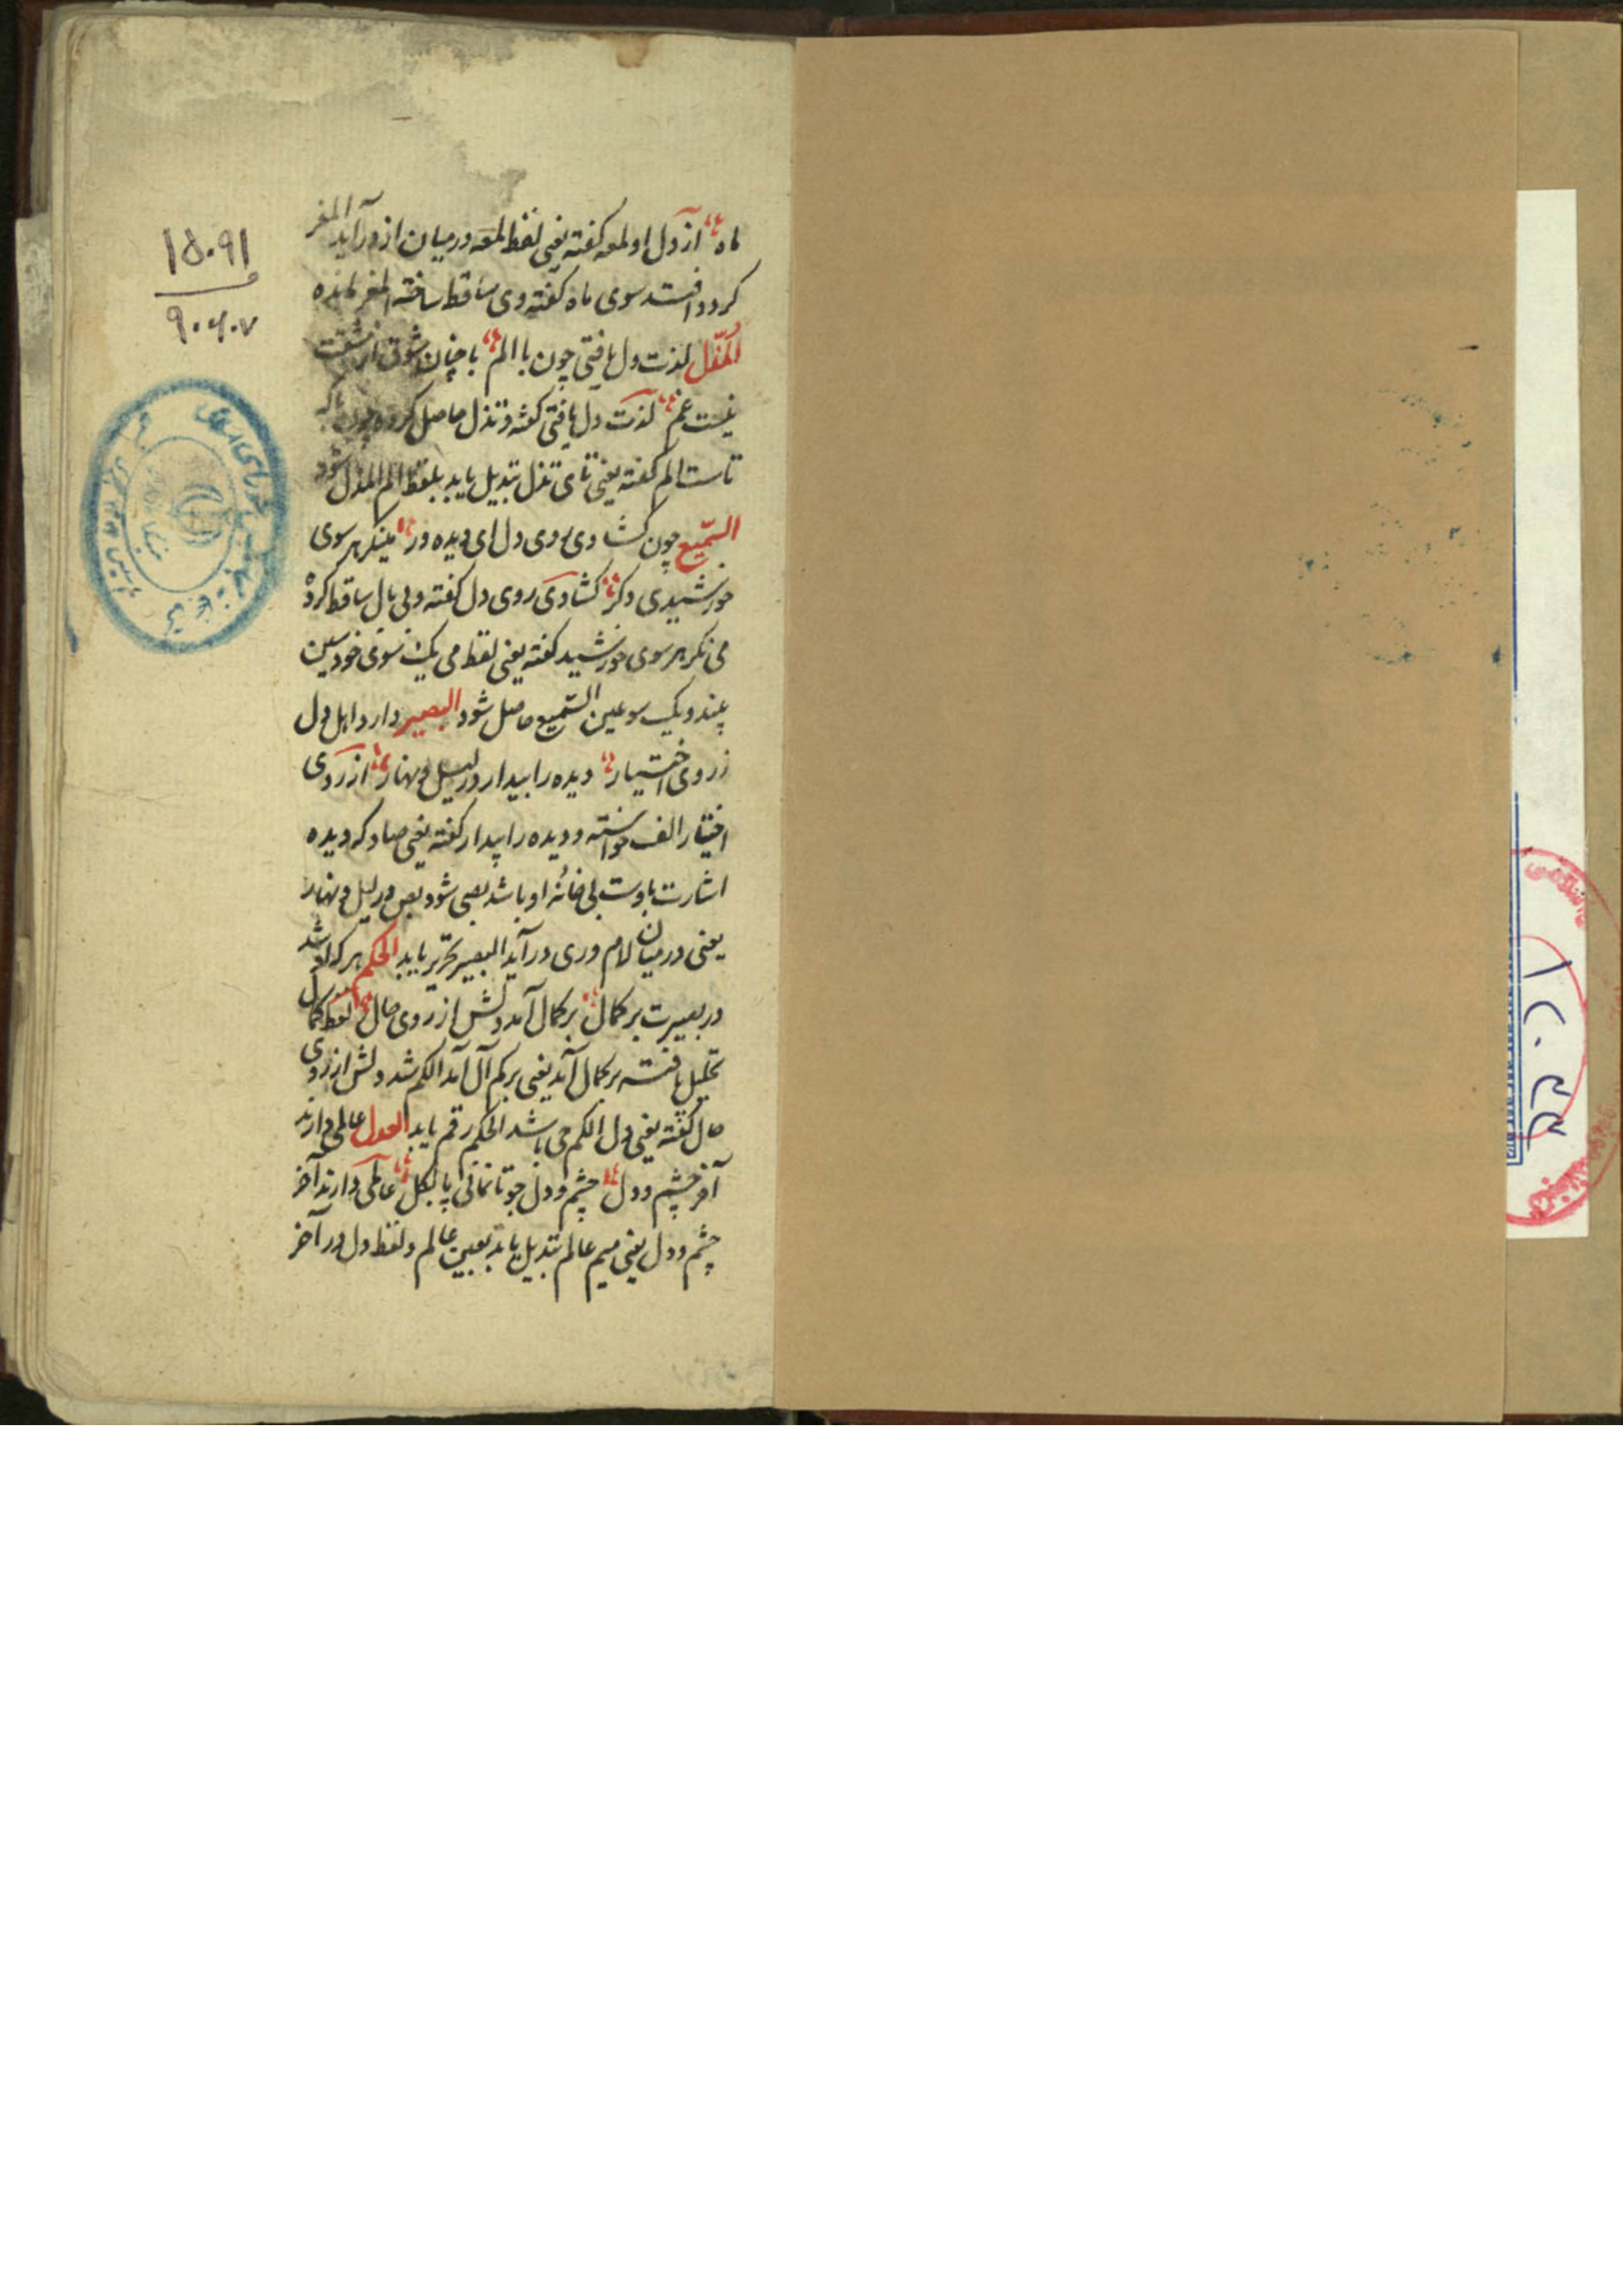 ماه از دل او لمعه کفته یعنی لفظ لمعه در میان از در آید المعز
کردد افتد سوی ماه کفته وی ساقط ساخته المعز مانده
المُذّل لذت دل یافتی چون با الم با چنان ذوق از مشقت
نیست غم لذت دل یافتی کفته و تذل حاصل کرده چون با که
تاست الم کفته یعنی تای تذل تبدیل یابد بلفظ الم المذل شود
السّمیع چون کشادی روی دل ای دیده ور مینکر هر سوی
خورشیدی دکر کشادی روی دل کفته و بی بال ساقط کرده
می نکر هر سوی خورشید کفته یعنی لفظ می یک سوی خود سین
بیند و یک سو عین السّمیع حاصل شود البصیر دارد اهل دل
ز روی اختیار دیده را بیدار در لیل و نهار از روی
اختیار الف خواسته و دیده را بیدار کفته یعنی صاد که دیده
اشارت باوست بی خانه او باشد بصی شود بص در لیل و نهار
یعنی در میان لام و ری در آید البصیر تحریر یابد الحکم هر که او شد
در بصیرت بر کمال بر کمال آمد دلش از روی حال لفظ کمال
تحلیل یافته بر کمال آمد یعنی بر کم آل آمد الکم شد دلش از روی
حال کفته یعنی دل الکم حی باشد الحکم رقم یابد العدل عالمی دارند
آخر چشم و دل چشم و دل جو تا نمانی پا بکل عالمی دارند آخر
چشم و دل یعنی میم عالم تبدیل یابد بعین عالم و لفظ دل در آخر
۱۵۰۹۱
۹۰۶۰۷